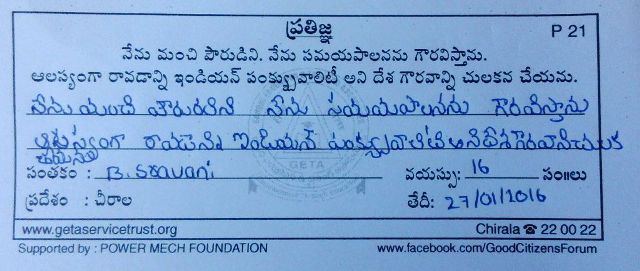 ప్రతిజ్ఞ
P 21
నేను మంచి పౌరుడిని. నేను సమయపాలనను గౌరవిస్తాను.
ఆలస్యంగా రావడాన్ని ఇండియన్ పంక్చువాలిటీ అని దేశ గౌరవాన్ని చులకన చేయను.
నేను మంచి పౌరుడిని నేను సమయపాలనను గౌరవిస్తాను
ఇండియన్ పంక్చువాలిటీ అని దేశ
సంతకం : B. Sravani వయస్సు: 16 సం॥లు
ప్రదేశం : చీరాల తేదీ: 27/01/2016
GETA
www.getaservicetrust.org Chirala ☎ 22 00 22
Supported by : POWER MECH FOUNDATION www.facebook.com/GoodCitizensForum